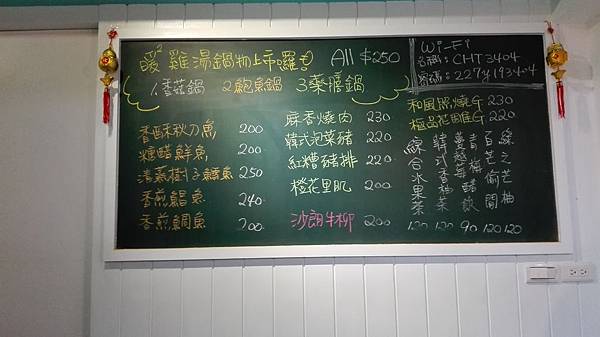 暖暖雞湯鍋物上市囉 All $250
1.香菇鍋 2.鮑魚鍋 3.藥膳鍋
Wi-Fi
名稱:CHT3404
香酥秋刀魚 200
糖醋鮮魚 200
清蒸樹子鱈魚 250
香煎鯧魚 240
香煎鯛魚 200
麻香燒肉 230
韓式泡菜豬 220
紅糟豬排 220
橙花里肌 200
沙朗牛柳 200
和風照燒G 230
極品花雕G 220
綜合水果茶 120
韓式香柚茶 120
蔓越莓醋飲 90
青梅 120
百 120
綠芝芒柚